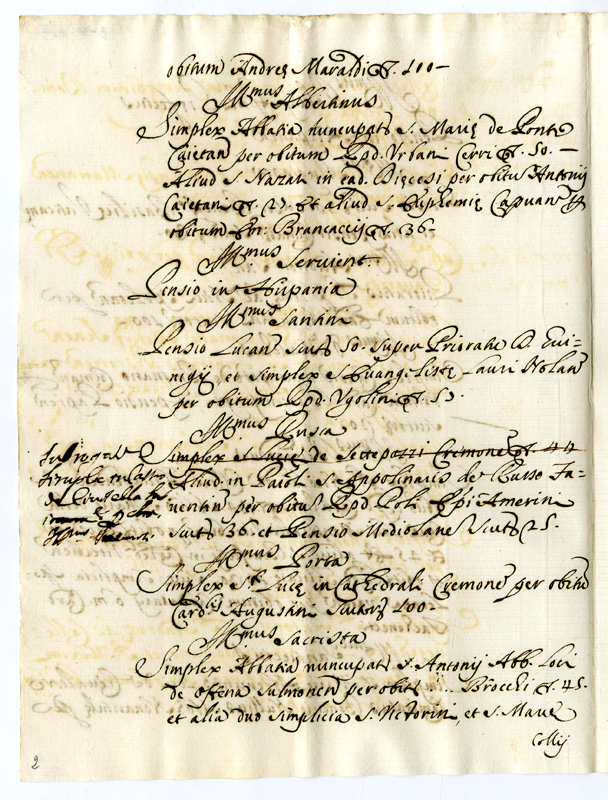 obitum Andreę Maraldi ∇. 100-
Ill.mus Albertinus
Simplex Abbatia nuncupat. S. Marię de Ponte
Caietan. per obitum Rpd. Urbani Cerri ∇. 50. —
Aliud S. Nazari in ead. Dięcesi per obitū Antonij
Caietani ∇. 25. Et aliud S. Euphemię Capuan.
obitum Brancaccij ∇. 36-
Ill.mus Servient.
Pensio in Hispania
Ill.mus Santini
Pensio Lucan. scut. 50. super Prioratu D.
et simplex S. Euangelistę Lauri Nolan.
per obitum Rpd. Vgolini ∇.
Ill.mus Pusca
Simplex S. Lucię de Settepozzi Cremonen. ∇. 44
Aliud in S. Appolinaris de Busso Fa=
uentin. per obitū Rpd. Poli Epi Amerin.
scut. 36. et Pensio Mediolanen. Scut. 25.
Subrogat.
simplex in Castro
de
Ill.mus Porta
Simplex S.tę Lucę in Cathedrali Cremonen. per obitū
Card.lis Augustini Scutor. 100-
Ill.mus Sacrista
Simplex Abbatia nuncupat. S. Antonij Abb. Loci
de offena Sulmonen. per obit. .... Brocchi ∇. 45.
et alia duo simplicia S. Victorini, et S. Maurę
Collij
2